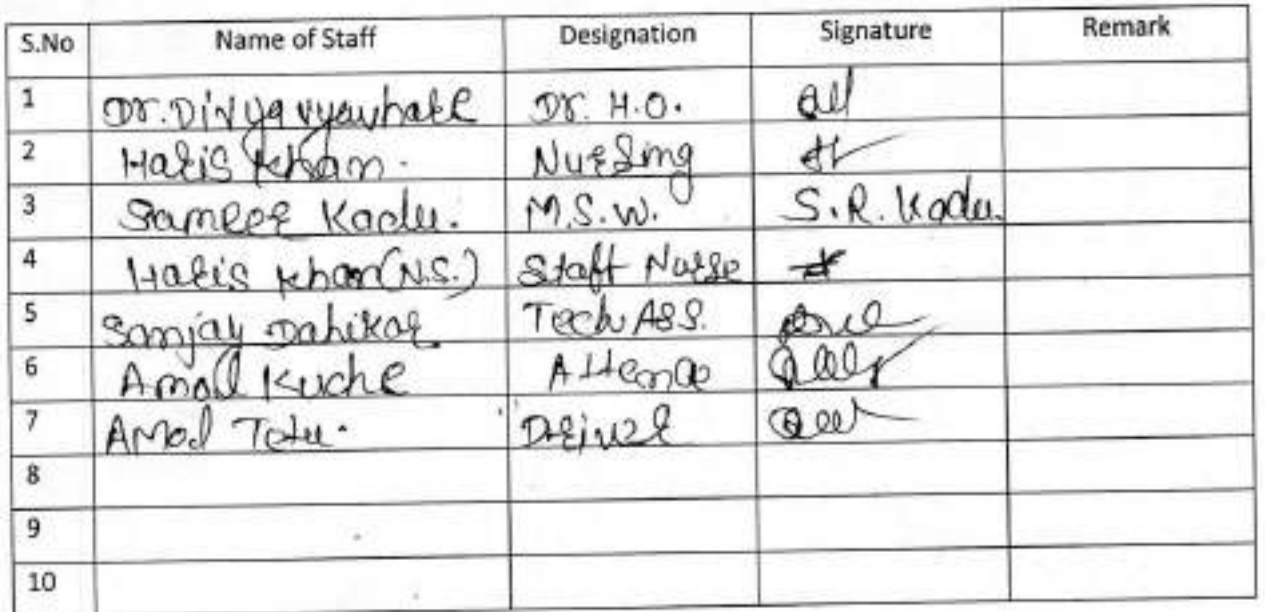 S.No Name of Staff Designation Signature Remark
1 Dr. Divya vyavhare Dr. H.O.
2 Haris Khan. Nursing
3 Sameer Kadu. M.S.W. S.R. Kadu.
4 Haris Khan (N.S.) Staff Nurse
5 Sanjay Dahikar Tech Ass.
6 Amol Kuche
7 Amol Driver
8
9
10